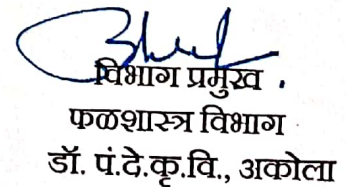 विभाग प्रमुख .
फळशास्त्र विभाग
डॉ. पं.दे.कृ.वि., अकोला